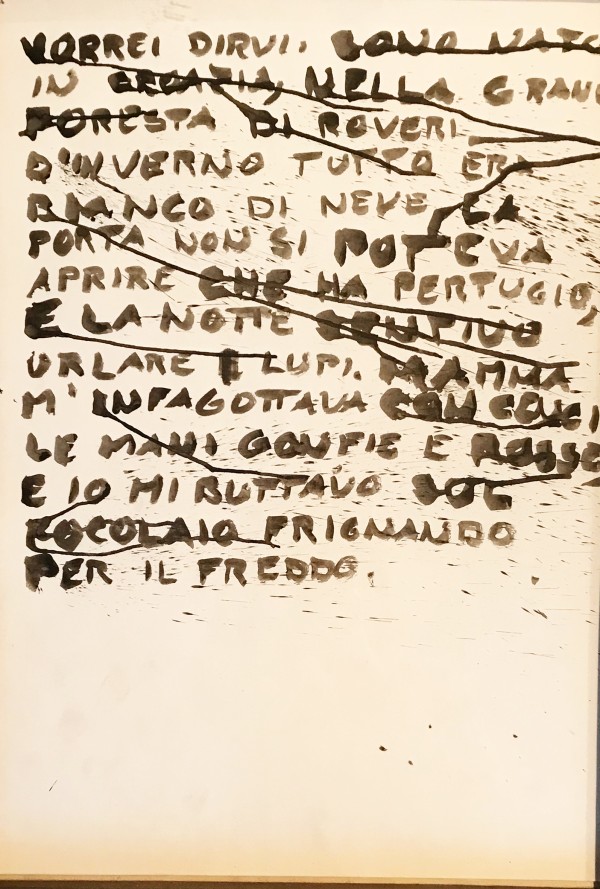 VORREI DIRVI. SONO NATO
IN CROAZIA, NELLA GRAN
FORESTA DI ROVERI
D'INVERNO TUTTO ERA
BIANCO DI NEVE LA
PORTA NON SI POTEVA
APRIRE CHE HA PERTUGIO,
E LA NOTTE
URLARE I LUPI. MAMMA
M'INFAGOTTAVA CON CENCI
LE MANI GONFIE E ROSSE
E IO MI BUTTAVO SOL
FOCOLAIO FRIGNANDO
PER IL FREDDO.